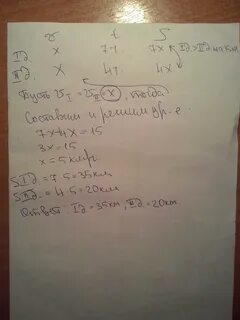 v t S
I д. x 7 ч. 7x I д. > II д. на 15 км
II д. x 4 ч. 4x
Пусть v I = v II = x, тогда
Составим и решим ур-е
7x-4x=15
3x=15
x=5км/ч
S I д. = 7·5=35км
S II д. = 4·5=20км
Ответ: I д=35км, II д=20км.